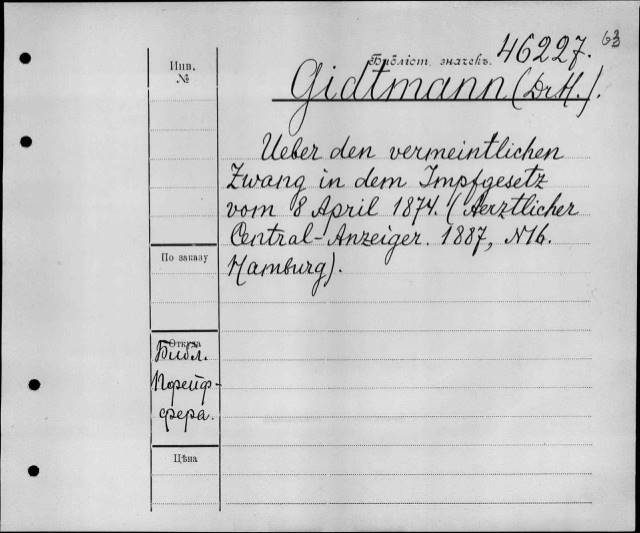 63
Инв. №
Библіот. значекъ. 46227.
Gidtmann (Dr H.).
Ueber den vermeintlichen
Zwang in dem Impfgesetz
vom 8 April 1874. (Aerztlicher
Central-Anzeiger. 1887, N16.
Hamburg).
По заказу
Откуда
Библ.
Порейф-
фера.
Цѣна